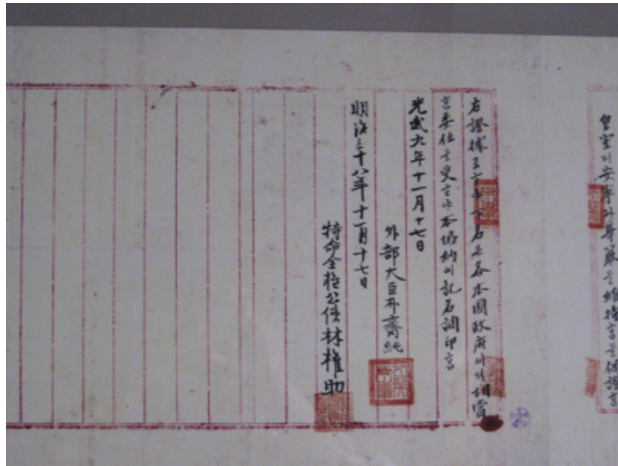 皇室의安寧과尊嚴을維持홈을保證홈
右證據로ᄒᆞ야下名은各本國政府에셔相當
ᄒᆞᆫ委任을受ᄒᆞ야本協約에記名調印홈
光武九年十一月十七日
外部大臣朴齊純
明治三十八年十一月十七日
特命全權公使林權助